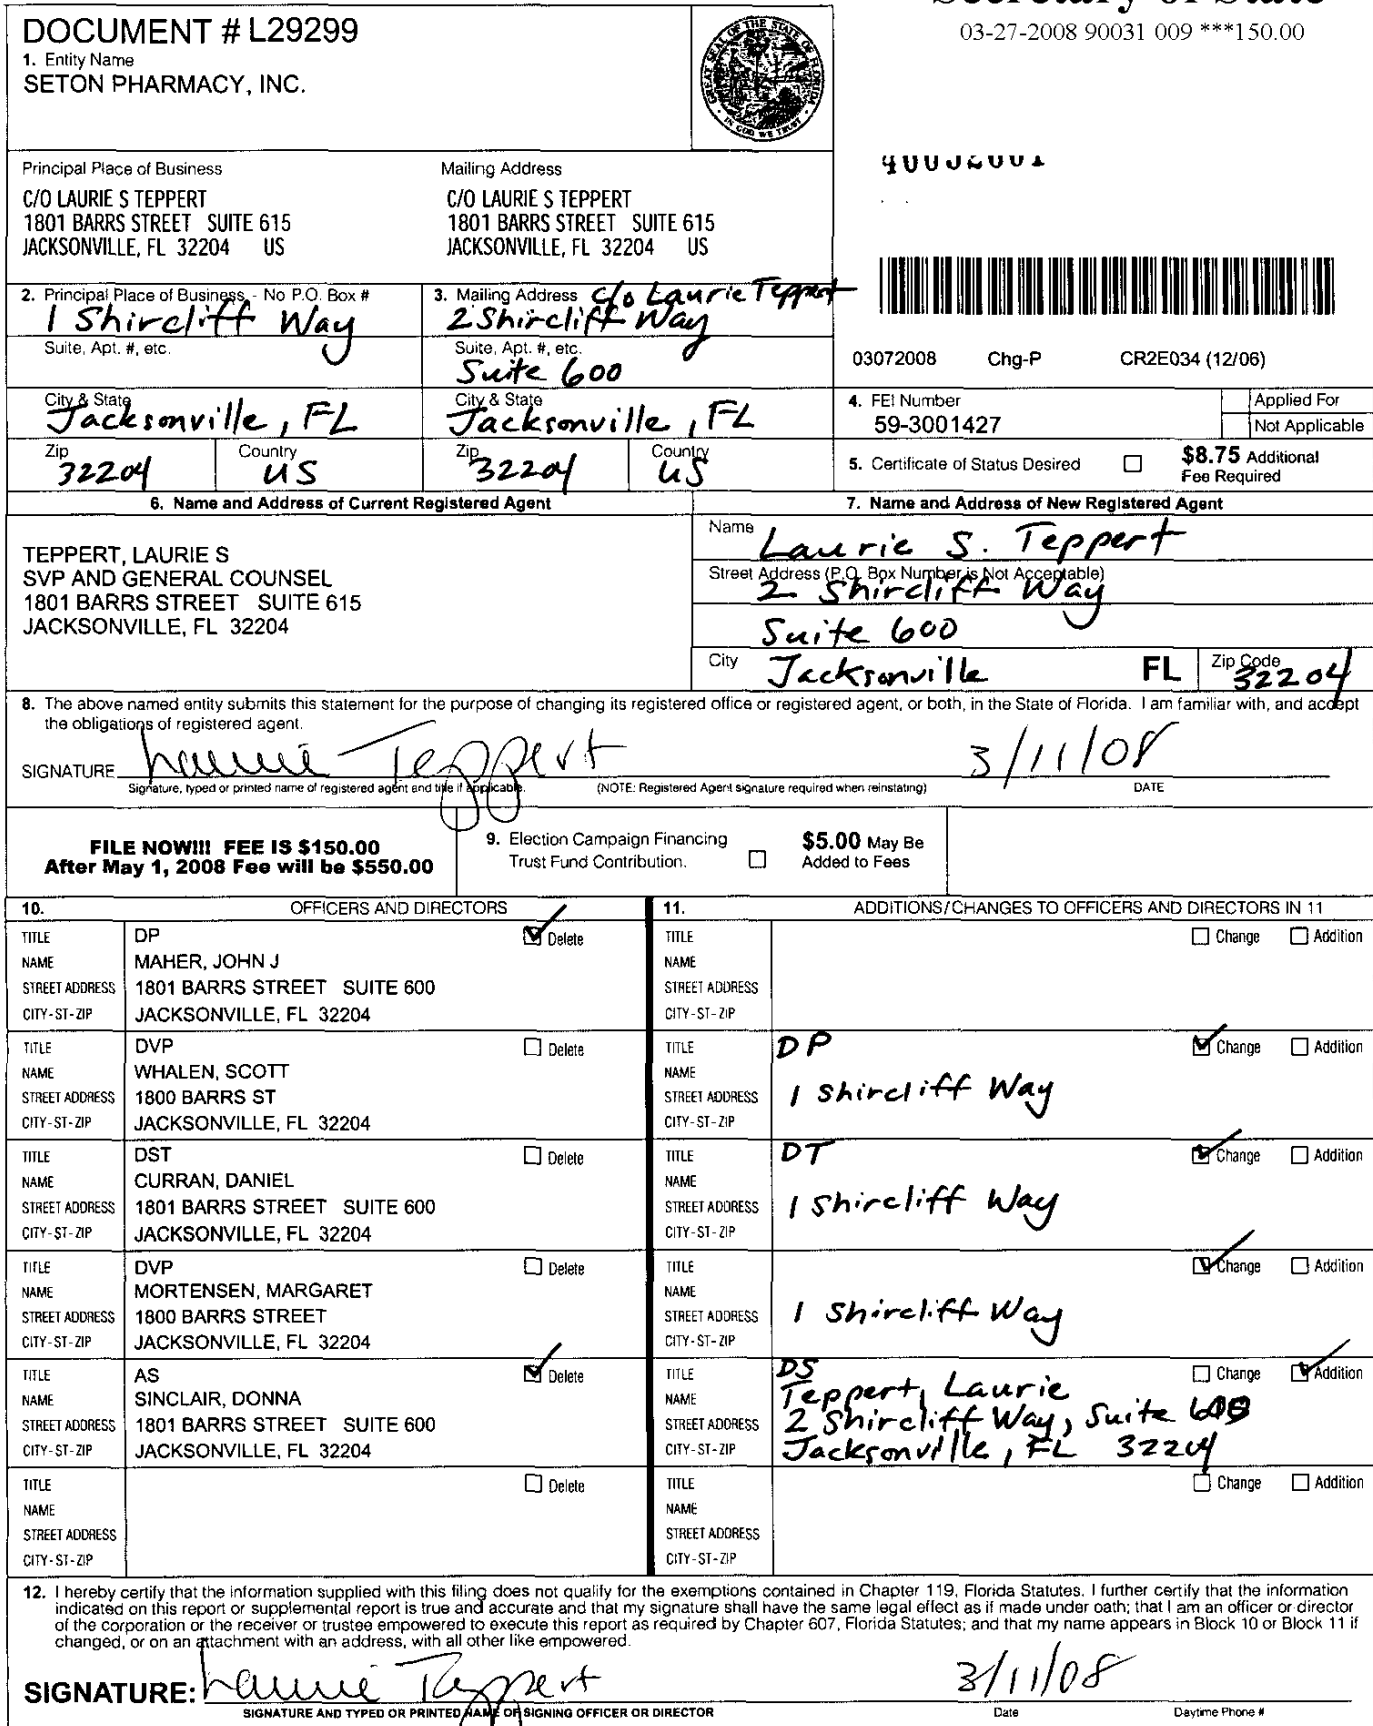 Secretary of State
03-27-2008 90031 009 ***150.00
DOCUMENT # L29299
1. Entity Name
SETON PHARMACY, INC.
GREAT SEAL OF THE STATE OF FLORIDA
IN GOD WE TRUST
Principal Place of Business
C/O LAURIE S TEPPERT
1801 BARRS STREET SUITE 615
JACKSONVILLE, FL 32204 US
Mailing Address
C/O LAURIE S TEPPERT
1801 BARRS STREET SUITE 615
JACKSONVILLE, FL 32204 US
2. Principal Place of Business - No P.O. Box #
1 Shircliff Way
Suite, Apt. #, etc.
City & State
Jacksonville, FL
Zip
32204
Country
US
3. Mailing Address c/o Laurie Teppert
2 Shircliff Way
Suite, Apt. #, etc.
Suite 600
City & State
Jacksonville, FL
Zip
32204
Country
US
03072008 Chg-P CR2E034 (12/06)
4. FEI Number
59-3001427
Applied For
Not Applicable
5. Certificate of Status Desired
$8.75 Additional
Fee Required
6. Name and Address of Current Registered Agent
TEPPERT, LAURIE S
SVP AND GENERAL COUNSEL
1801 BARRS STREET SUITE 615
JACKSONVILLE, FL 32204
7. Name and Address of New Registered Agent
Name
Laurie S. Teppert
Street Address (P.O. Box Number is Not Acceptable)
2 Shircliff Way
Suite 600
City
Jacksonville FL
Zip Code
32204
8. The above named entity submits this statement for the purpose of changing its registered office or registered agent, or both, in the State of Florida. I am familiar with, and accept
the obligations of registered agent.
SIGNATURE Laurie Teppert 3/11/08
Signature, typed or printed name of registered agent and title if applicable. (NOTE: Registered Agent signature required when reinstating) DATE
FILE NOW!!! FEE IS $150.00
After May 1, 2008 Fee will be $550.00
9. Election Campaign Financing
Trust Fund Contribution.
$5.00 May Be
Added to Fees
10. OFFICERS AND DIRECTORS
11. ADDITIONS/CHANGES TO OFFICERS AND DIRECTORS IN 11
TITLE DP Delete
NAME MAHER, JOHN J
STREET ADDRESS 1801 BARRS STREET SUITE 600
CITY-ST-ZIP JACKSONVILLE, FL 32204
TITLE Change Addition
NAME
STREET ADDRESS
CITY-ST-ZIP
TITLE DVP Delete
NAME WHALEN, SCOTT
STREET ADDRESS 1800 BARRS ST
CITY-ST-ZIP JACKSONVILLE, FL 32204
TITLE DP Change Addition
NAME
STREET ADDRESS 1 Shircliff Way
CITY-ST-ZIP
TITLE DST Delete
NAME CURRAN, DANIEL
STREET ADDRESS 1801 BARRS STREET SUITE 600
CITY-ST-ZIP JACKSONVILLE, FL 32204
TITLE DT Change Addition
NAME
STREET ADDRESS 1 Shircliff Way
CITY-ST-ZIP
TITLE DVP Delete
NAME MORTENSEN, MARGARET
STREET ADDRESS 1800 BARRS STREET
CITY-ST-ZIP JACKSONVILLE, FL 32204
TITLE Change Addition
NAME
STREET ADDRESS 1 Shircliff Way
CITY-ST-ZIP
TITLE AS Delete
NAME SINCLAIR, DONNA
STREET ADDRESS 1801 BARRS STREET SUITE 600
CITY-ST-ZIP JACKSONVILLE, FL 32204
TITLE DS Change Addition
NAME Teppert, Laurie
STREET ADDRESS 2 Shircliff Way, Suite 600
CITY-ST-ZIP Jacksonville, FL 32204
TITLE Delete
NAME
STREET ADDRESS
CITY-ST-ZIP
TITLE Change Addition
NAME
STREET ADDRESS
CITY-ST-ZIP
12. I hereby certify that the information supplied with this filing does not qualify for the exemptions contained in Chapter 119, Florida Statutes. I further certify that the information
indicated on this report or supplemental report is true and accurate and that my signature shall have the same legal effect as if made under oath; that I am an officer or director
of the corporation or the receiver or trustee empowered to execute this report as required by Chapter 607, Florida Statutes; and that my name appears in Block 10 or Block 11 if
changed, or on an attachment with an address, with all other like empowered.
SIGNATURE: Laurie Teppert 3/11/08
SIGNATURE AND TYPED OR PRINTED NAME OF SIGNING OFFICER OR DIRECTOR Date Daytime Phone #